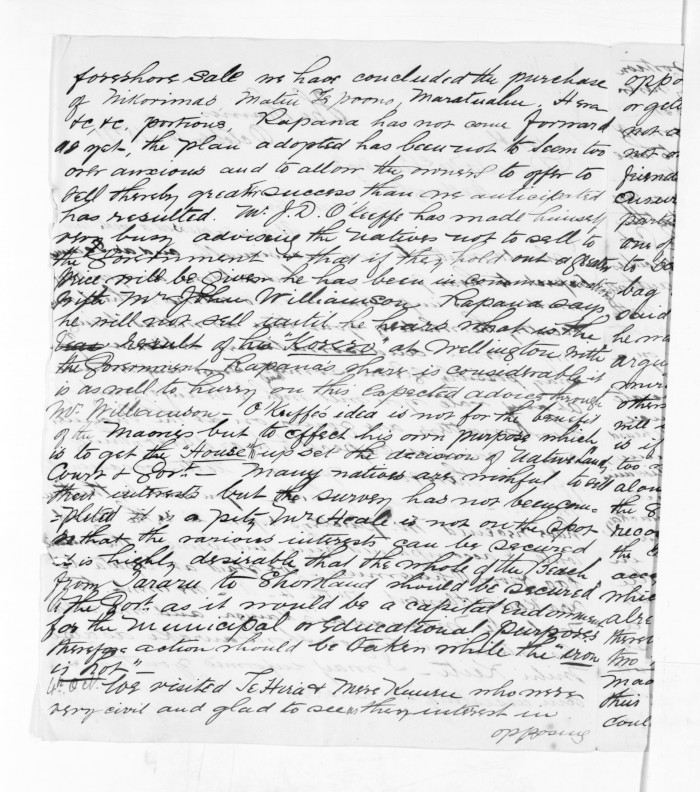 foreshore sale we have concluded the purchase
of Nikorimas Matiu Te poono, Maratuahu, Hera
&c, &c, portions, Rapana has not come forward
as yet, the plan adopted has been not to seem too
over anxious and to allow the owners to offer to
sell thereby greater success than we anticipated
has resulted. Mr. J. D. O'Keeffe has made himself
very busy advising the Natives not to sell to
the Government & that if they hold out a greater
price will be given he has been in
with Mr John Williamson Rapana says
he will not sell until he hears what is the
result of his "Korero" at Wellington with
the Government Rapana's share is considerable it
is as well to hurry on this expected advice through
Mr. Williamson - O'Keeffe's idea is not for the benefit
of the Maories but to effect his own purpose which
is to get the "House" up set the decision of Native Lands
Court & Govt. - Many natives are wishful to sell
their interests but the survey has not been com-
-pleted it is a pity Mr Heale is not on the spot
that the various interests can be secured
it is highly desirable that the whole of the Beach
from Tararu to Shortland should be secured
to the Govt. as it would be a capital Endowment
for the Municipal or Educational purposes
therefore action should be taken while the "iron
is hot"
4th Oct. We visited Te Hira & Mere Kuuru who were
very civil and glad to see us they interest in
opposing
oppo
or gett
not a
not o
friend
part
one of
to
bag
said
he wa
argu
other
will
is
too
alon
the
reco
the
acce
which
alre
there
two
mad
this
coul